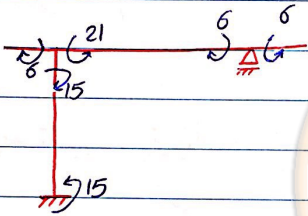 6 6
21
6
15
15